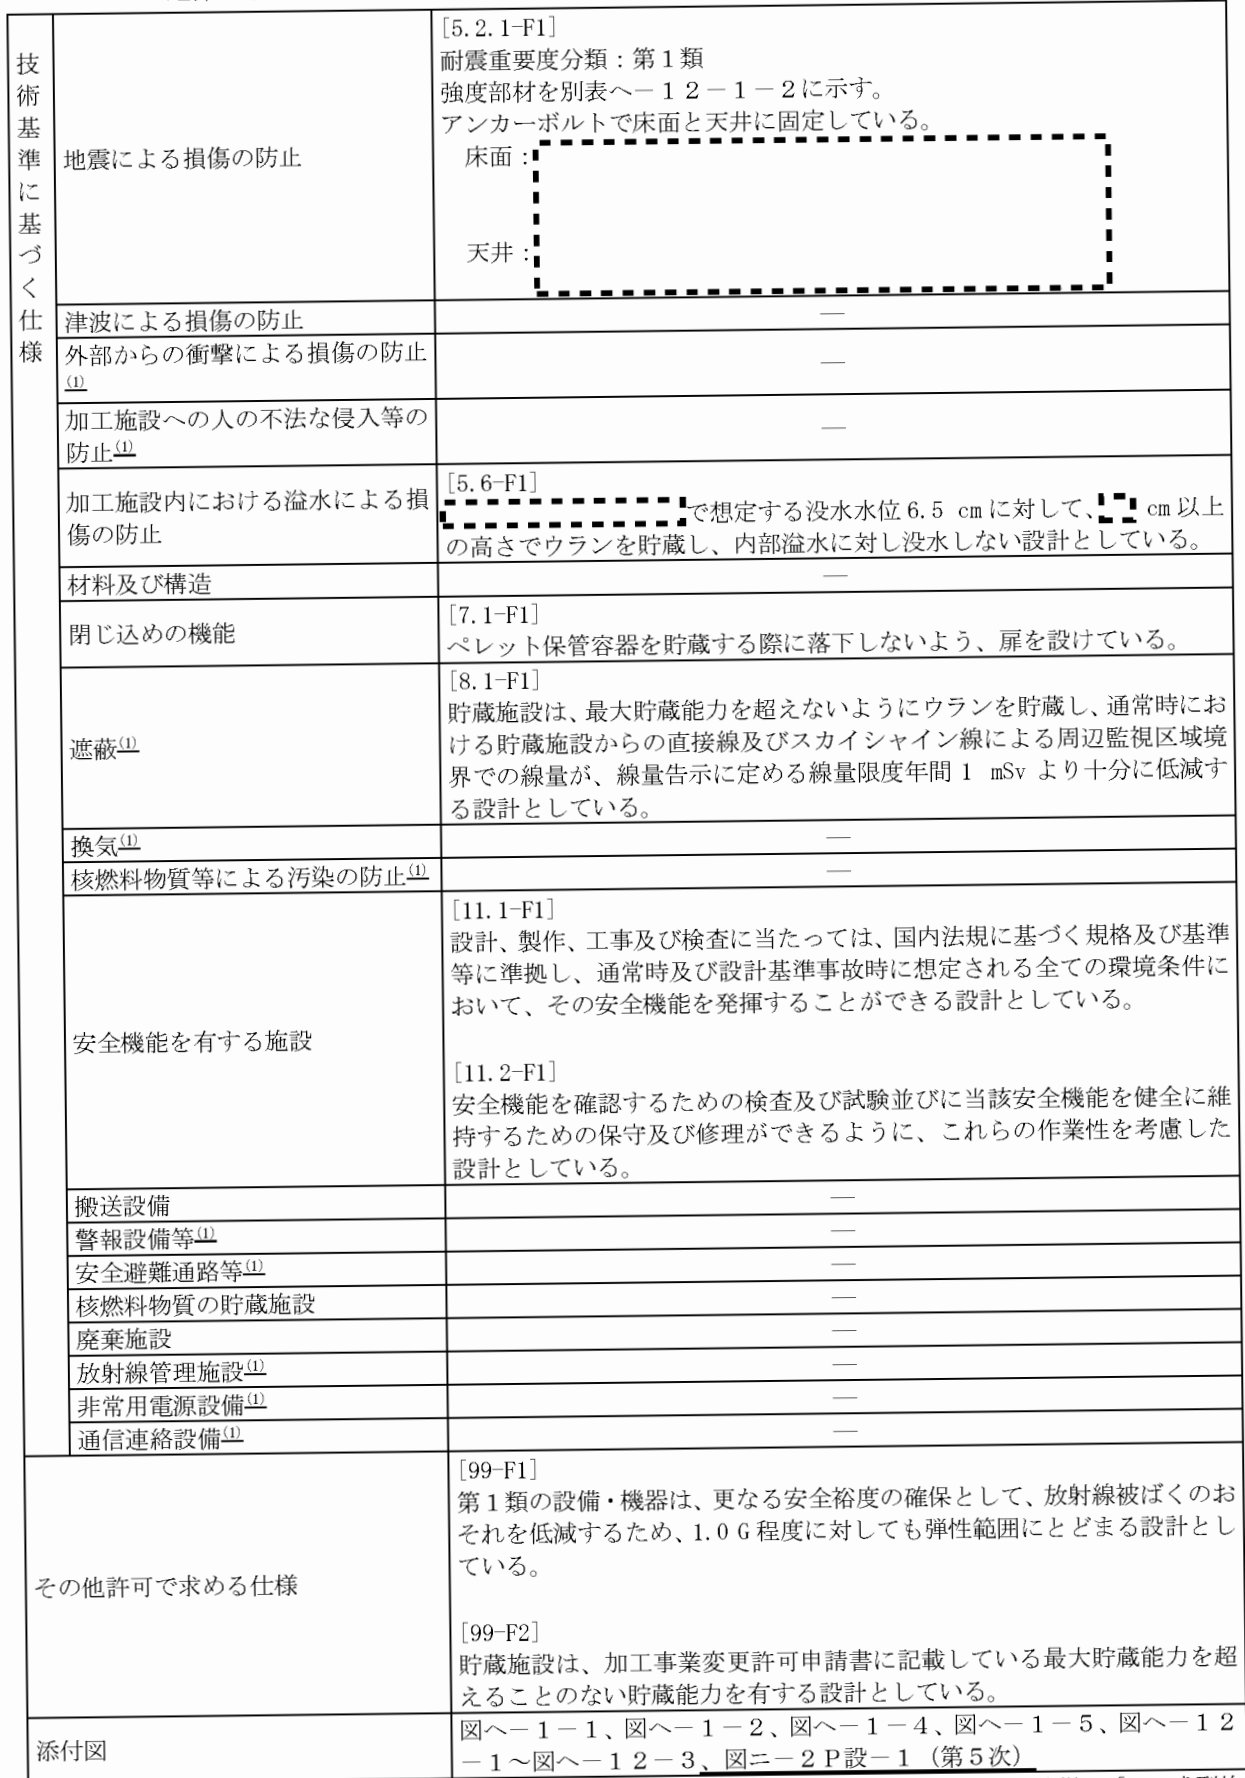 技術基準に基づく仕様
地震による損傷の防止
[5.2.1-F1]
耐震重要度分類：第１類
強度部材を別表ヘ－１２－１－２に示す。
アンカーボルトで床面と天井に固定している。
床面：
天井：
津波による損傷の防止
―
外部からの衝撃による損傷の防止
(1)
―
加工施設への人の不法な侵入等の
防止(1)
―
加工施設内における溢水による損
傷の防止
[5.6-F1]
で想定する没水水位 6.5 cm に対して、 cm 以上
の高さでウランを貯蔵し、内部溢水に対し没水しない設計としている。
材料及び構造
―
閉じ込めの機能
[7.1-F1]
ペレット保管容器を貯蔵する際に落下しないよう、扉を設けている。
遮蔽(1)
[8.1-F1]
貯蔵施設は、最大貯蔵能力を超えないようにウランを貯蔵し、通常時にお
ける貯蔵施設からの直接線及びスカイシャイン線による周辺監視区域境
界での線量が、線量告示に定める線量限度年間 1 mSv より十分に低減す
る設計としている。
換気(1)
―
核燃料物質等による汚染の防止(1)
―
安全機能を有する施設
[11.1-F1]
設計、製作、工事及び検査に当たっては、国内法規に基づく規格及び基準
等に準拠し、通常時及び設計基準事故時に想定される全ての環境条件に
おいて、その安全機能を発揮することができる設計としている。
[11.2-F1]
安全機能を確認するための検査及び試験並びに当該安全機能を健全に維
持するための保守及び修理ができるように、これらの作業性を考慮した
設計としている。
搬送設備
―
警報設備等(1)
―
安全避難通路等(1)
―
核燃料物質の貯蔵施設
―
廃棄施設
―
放射線管理施設(1)
―
非常用電源設備(1)
―
通信連絡設備(1)
―
その他許可で求める仕様
[99-F1]
第１類の設備・機器は、更なる安全裕度の確保として、放射線被ばくのお
それを低減するため、1.0 G 程度に対しても弾性範囲にとどまる設計とし
ている。
[99-F2]
貯蔵施設は、加工事業変更許可申請書に記載している最大貯蔵能力を超
えることのない貯蔵能力を有する設計としている。
添付図
図ヘ－１－１、図ヘ－１－２、図ヘ－１－４、図ヘ－１－５、図ヘ－１２
－１～図ヘ－１２－３、図ニ－２Ｐ設－１（第５次）